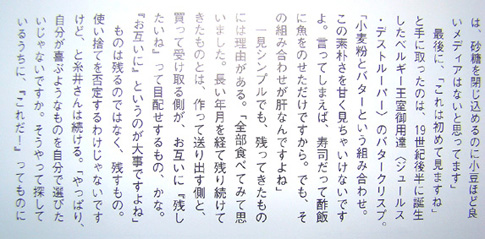 は、砂糖を閉じ込めるのに小豆ほど良
いメディアはないと思ってます」
最後に、「これは初めて見ますね」
と手に取ったのは、19世紀後半に誕生
したベルギー王室御用達〈ジュールス
・デストルーパー〉のバタークリスプ。
「小麦粉とバターという組み合わせ。
この素朴さを甘く見ちゃいけないです
よ。言ってしまえば、寿司だって酢飯
に魚をのせただけですから。でも、そ
の組み合わせが肝なんですよね」
一見シンプルでも、残ってきたもの
には理由がある。「全部食べてみて思
いました。長い年月を経て残り続けて
きたものとは、作って送り出す側と、
買って受け取る側が、お互いに『残し
たいね』って目配せするもの、かな。
『お互いに』というのが大事ですよね」
ものは残るのではなく、残すもの。
使い捨てを否定するわけじゃないです
けど、と糸井さんは続ける。「やっぱり、
自分が喜ぶようなものを自分で選びた
いじゃないですか。そうやって探して
いるうちに、『これだ！』ってものに